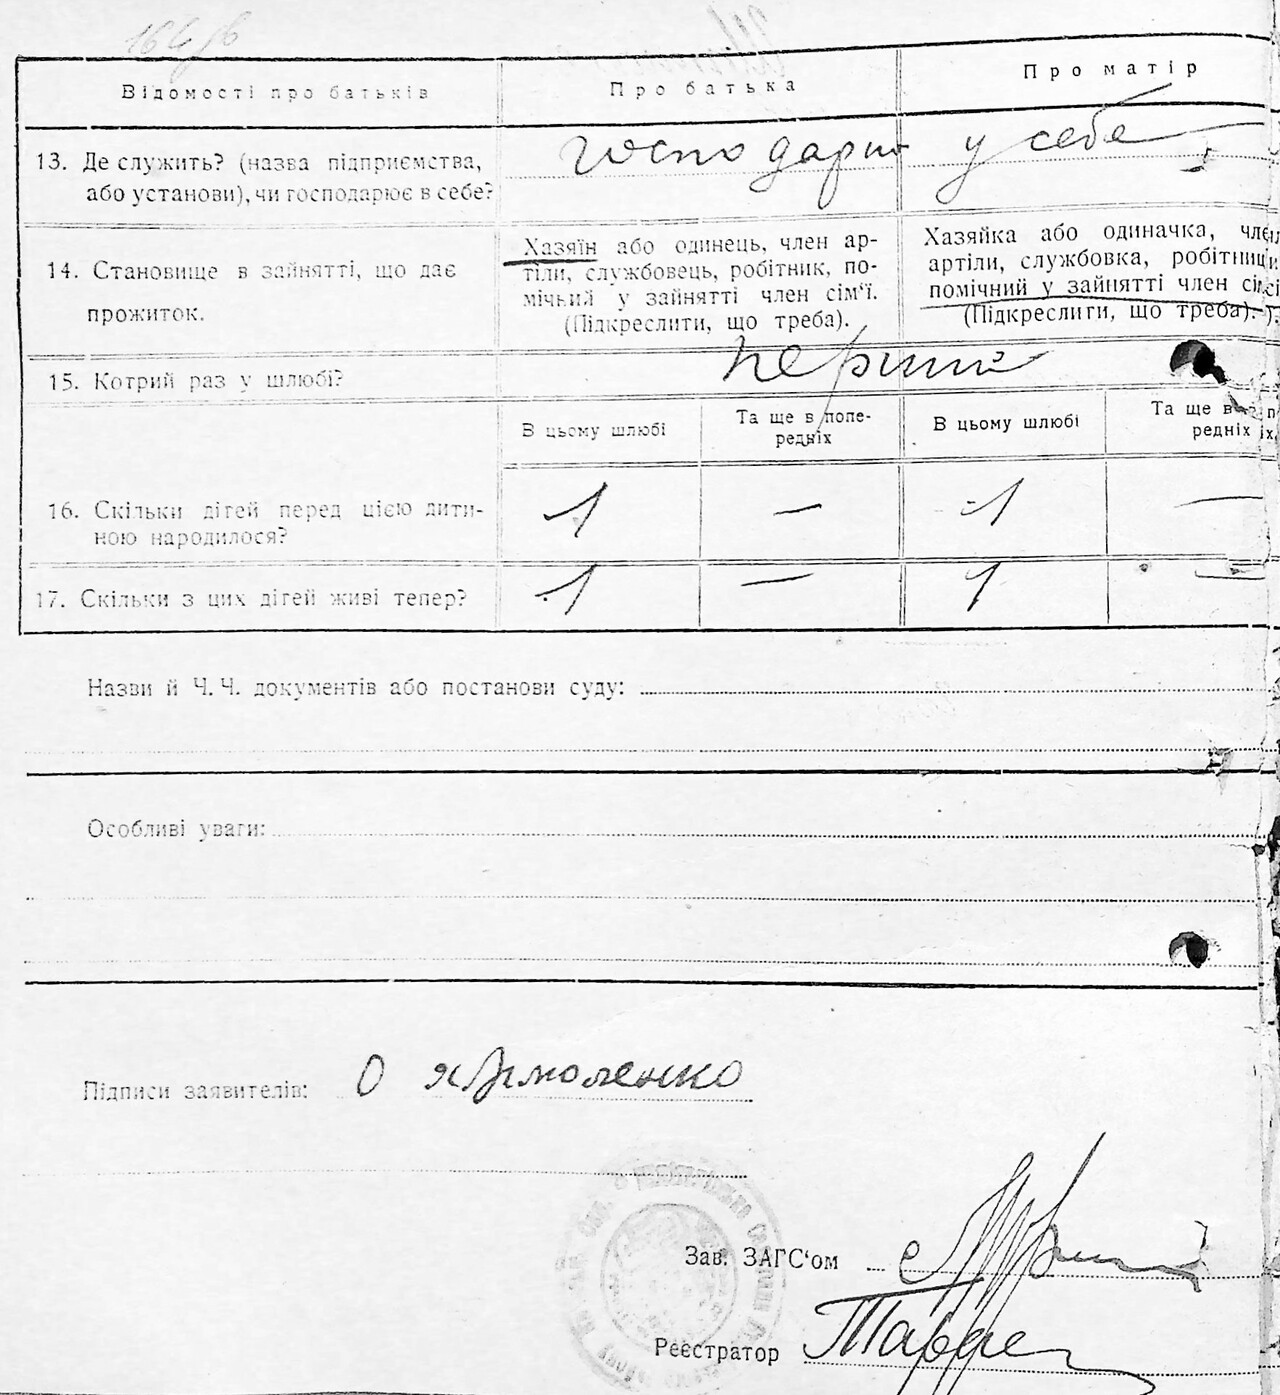 Відомості про батьків Про батька Про матір
13. Де служить? (назва підприємства, або установи), чи господарює в себе?
господарює у себе
14. Становище в зайнятті, що дає прожиток.
Хазяїн або одинець, член ар-
тіли, службовець, робітник, по-
мічний у зайнятті член сім'ї.
(Підкреслити, що треба).
Хазяйка або одиначка, член
артіли, службовка, робітниця
помічний у зайнятті член сім
(Підкреслити, що треба).
15. Котрий раз у шлюбі? перший
В цьому шлюбі Та ще в попе-
редніх В цьому шлюбі Та ще в п
редніх
16. Скільки дітей перед цією дити-
ною народилося? 1 — 1 —
17. Скільки з цих дітей живі тепер? 1 — 1 —
Назви й Ч. Ч. документів або постанови суду:
Особливі уваги:
Підписи заявителів: О Ярмоленко
Зав. ЗАГС'ом
Реєстратор